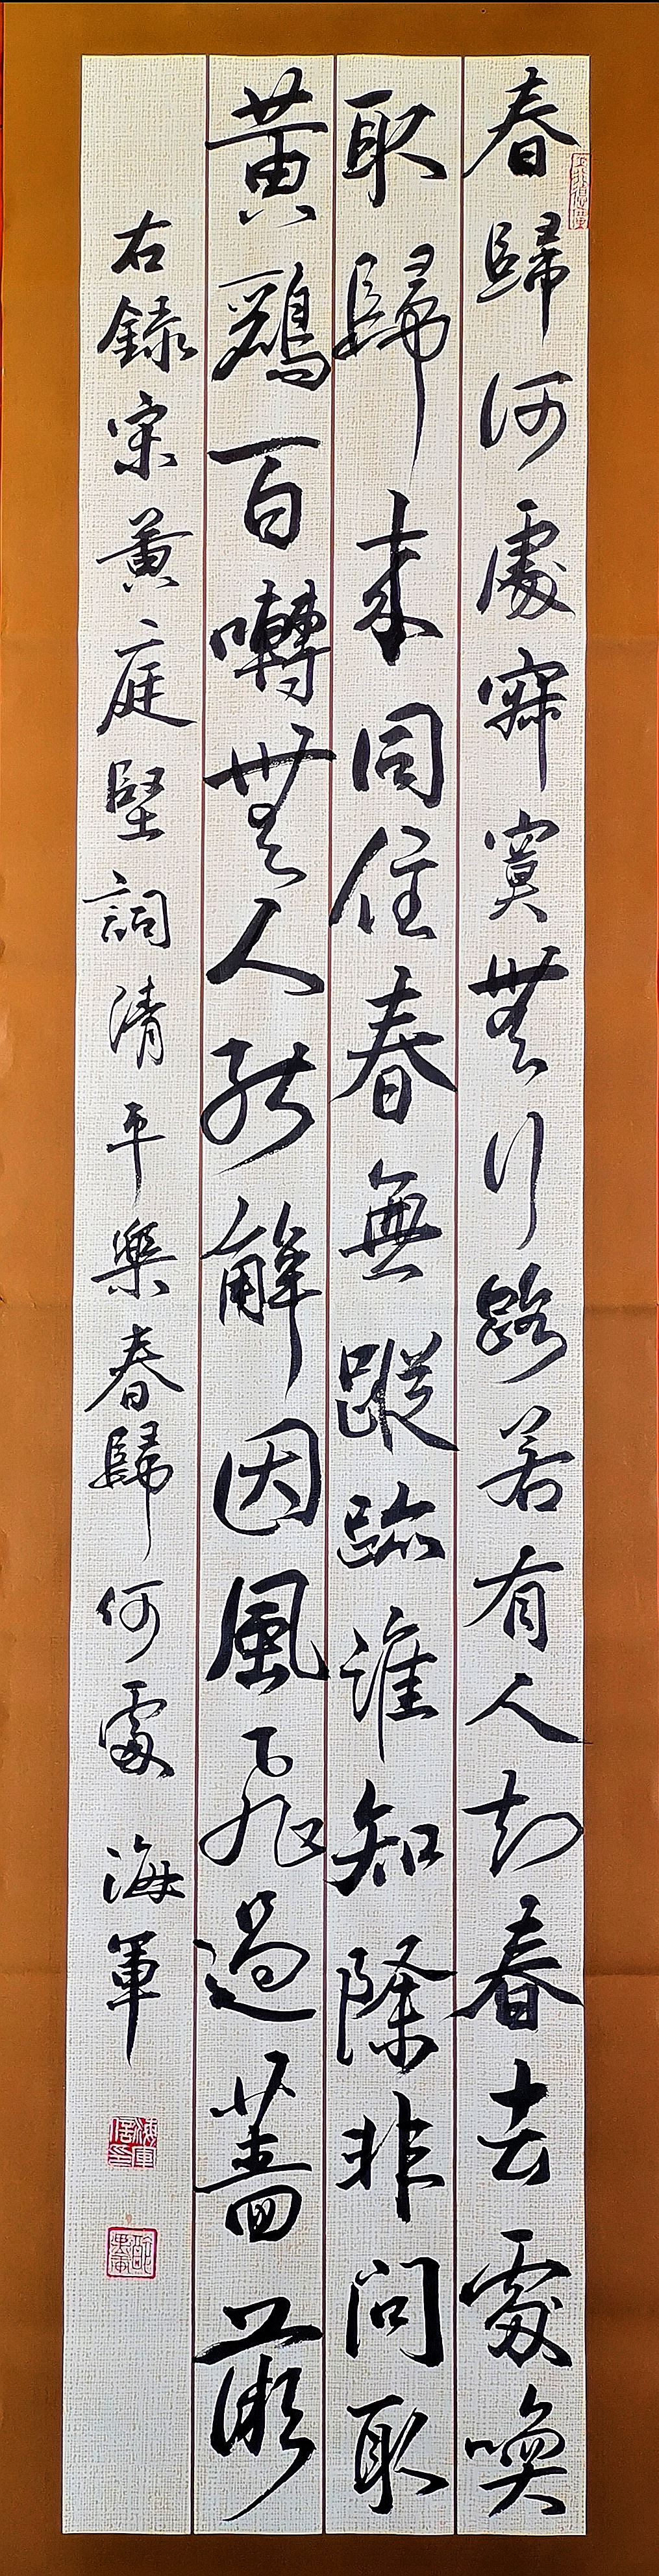 春歸何處寂寞無行路若有人知春去處喚
取歸來同住春無蹤跡誰知除非問取
黃鸝百囀無人能解因風飛過薔薇
右錄宋黃庭堅詞清平樂春歸何處 海軍